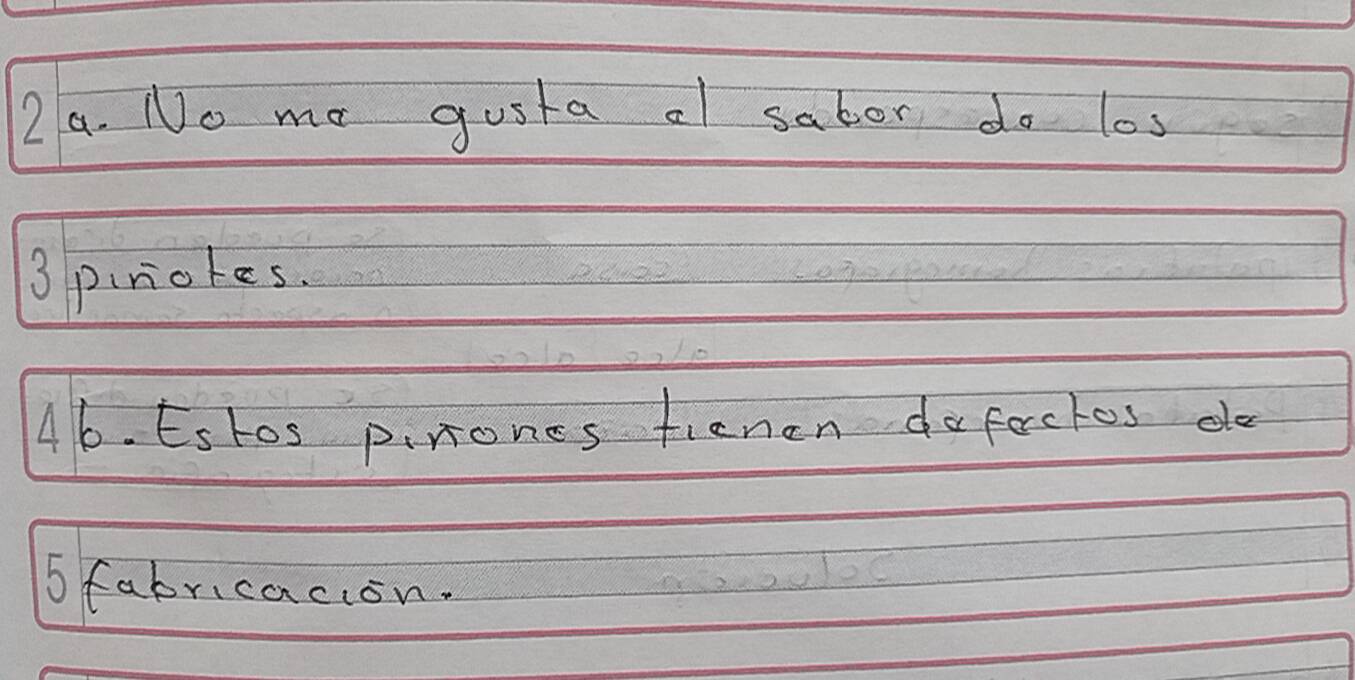 2 a. No me gusta el sabor de los
3 piñotes.
4 b. Estos piñones tienen defectos de
5 fabricación.